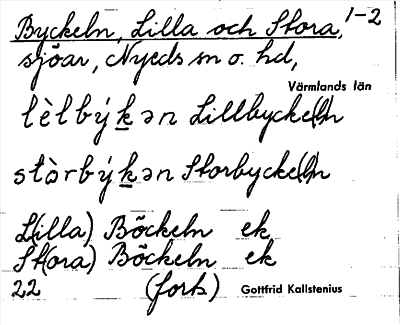 Byckeln, Lilla och Stora, 1-2
sjöar, Nyeds sn o. hd,
Värmlands län
lèlbýkən Lillbycke(l)n
stòrbýkən Storbycke(l)n
L(illa) Böckeln ek
St(ora) Böckeln ek
22 (forts) Gottfrid Kallstenius